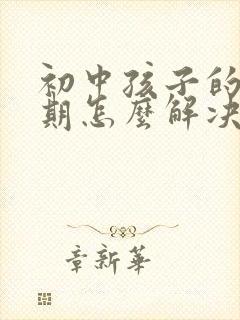 初中孩子的
期怎麼解决
章新華